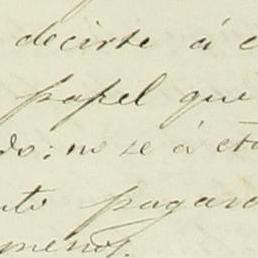 decirte á c
papel que
do; no se á
nto pagara
menos.